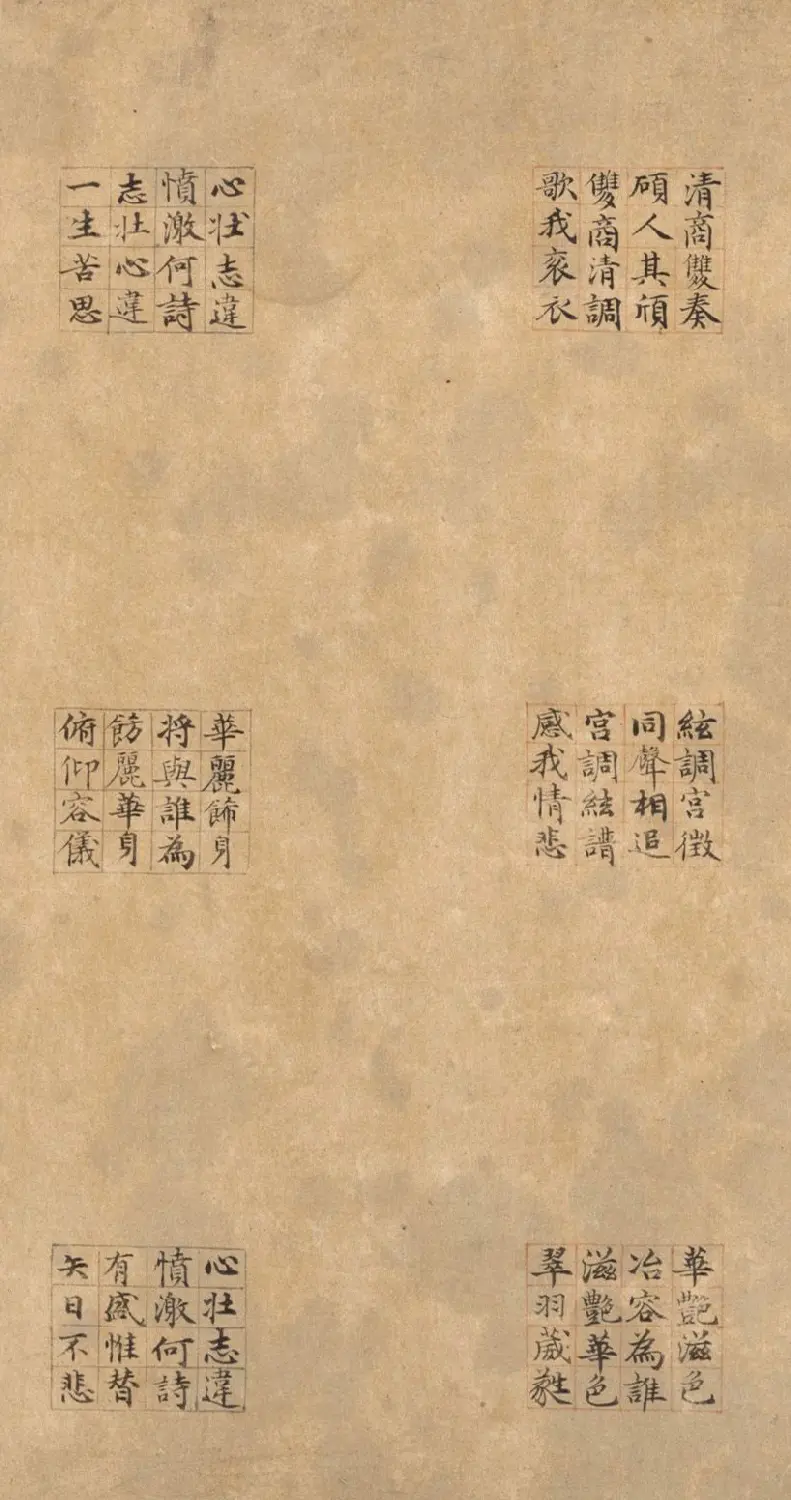 清商雙奏
碩人其頎
雙商清調
歌我衮衣
心壯志違
憤激何詩
志壯心違
一生苦思
絃調宮徵
同聲相追
宮調絃譜
感我情悲
華麗飾身
將與誰為
飭麗華身
俯仰容儀
華艷滋色
冶容為誰
滋艷華色
翠羽葳蕤
心壯志違
憤激何詩
有感惟替
矢日不悲